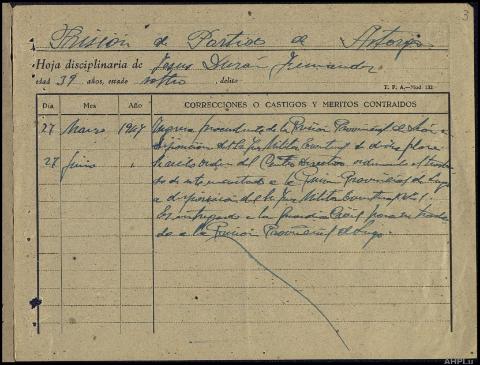 3
Prisión de Partido de Astorga
Hoja disciplinaria de Jesus Durán Fernandez
edad 39 años, estado soltro delito
T. P. A.-Mod 132
Día Mes Año CORRECCIONES O CASTIGOS Y MERITOS CONTRAIDOS
27 Marzo 1947 Ingresa procedente de la Prisión Provincial de León a
disposición del Juez Militar Eventual de dicha plaza
27 Junio " orden del Centro Directivo ordenando el
de este a la Prision Provincial de Lugo
a disposicion del Sr Juez Militar Eventual
Es entregado a la Guardia Civil para su
a la Prision Provincial de Lugo.
AHPLu